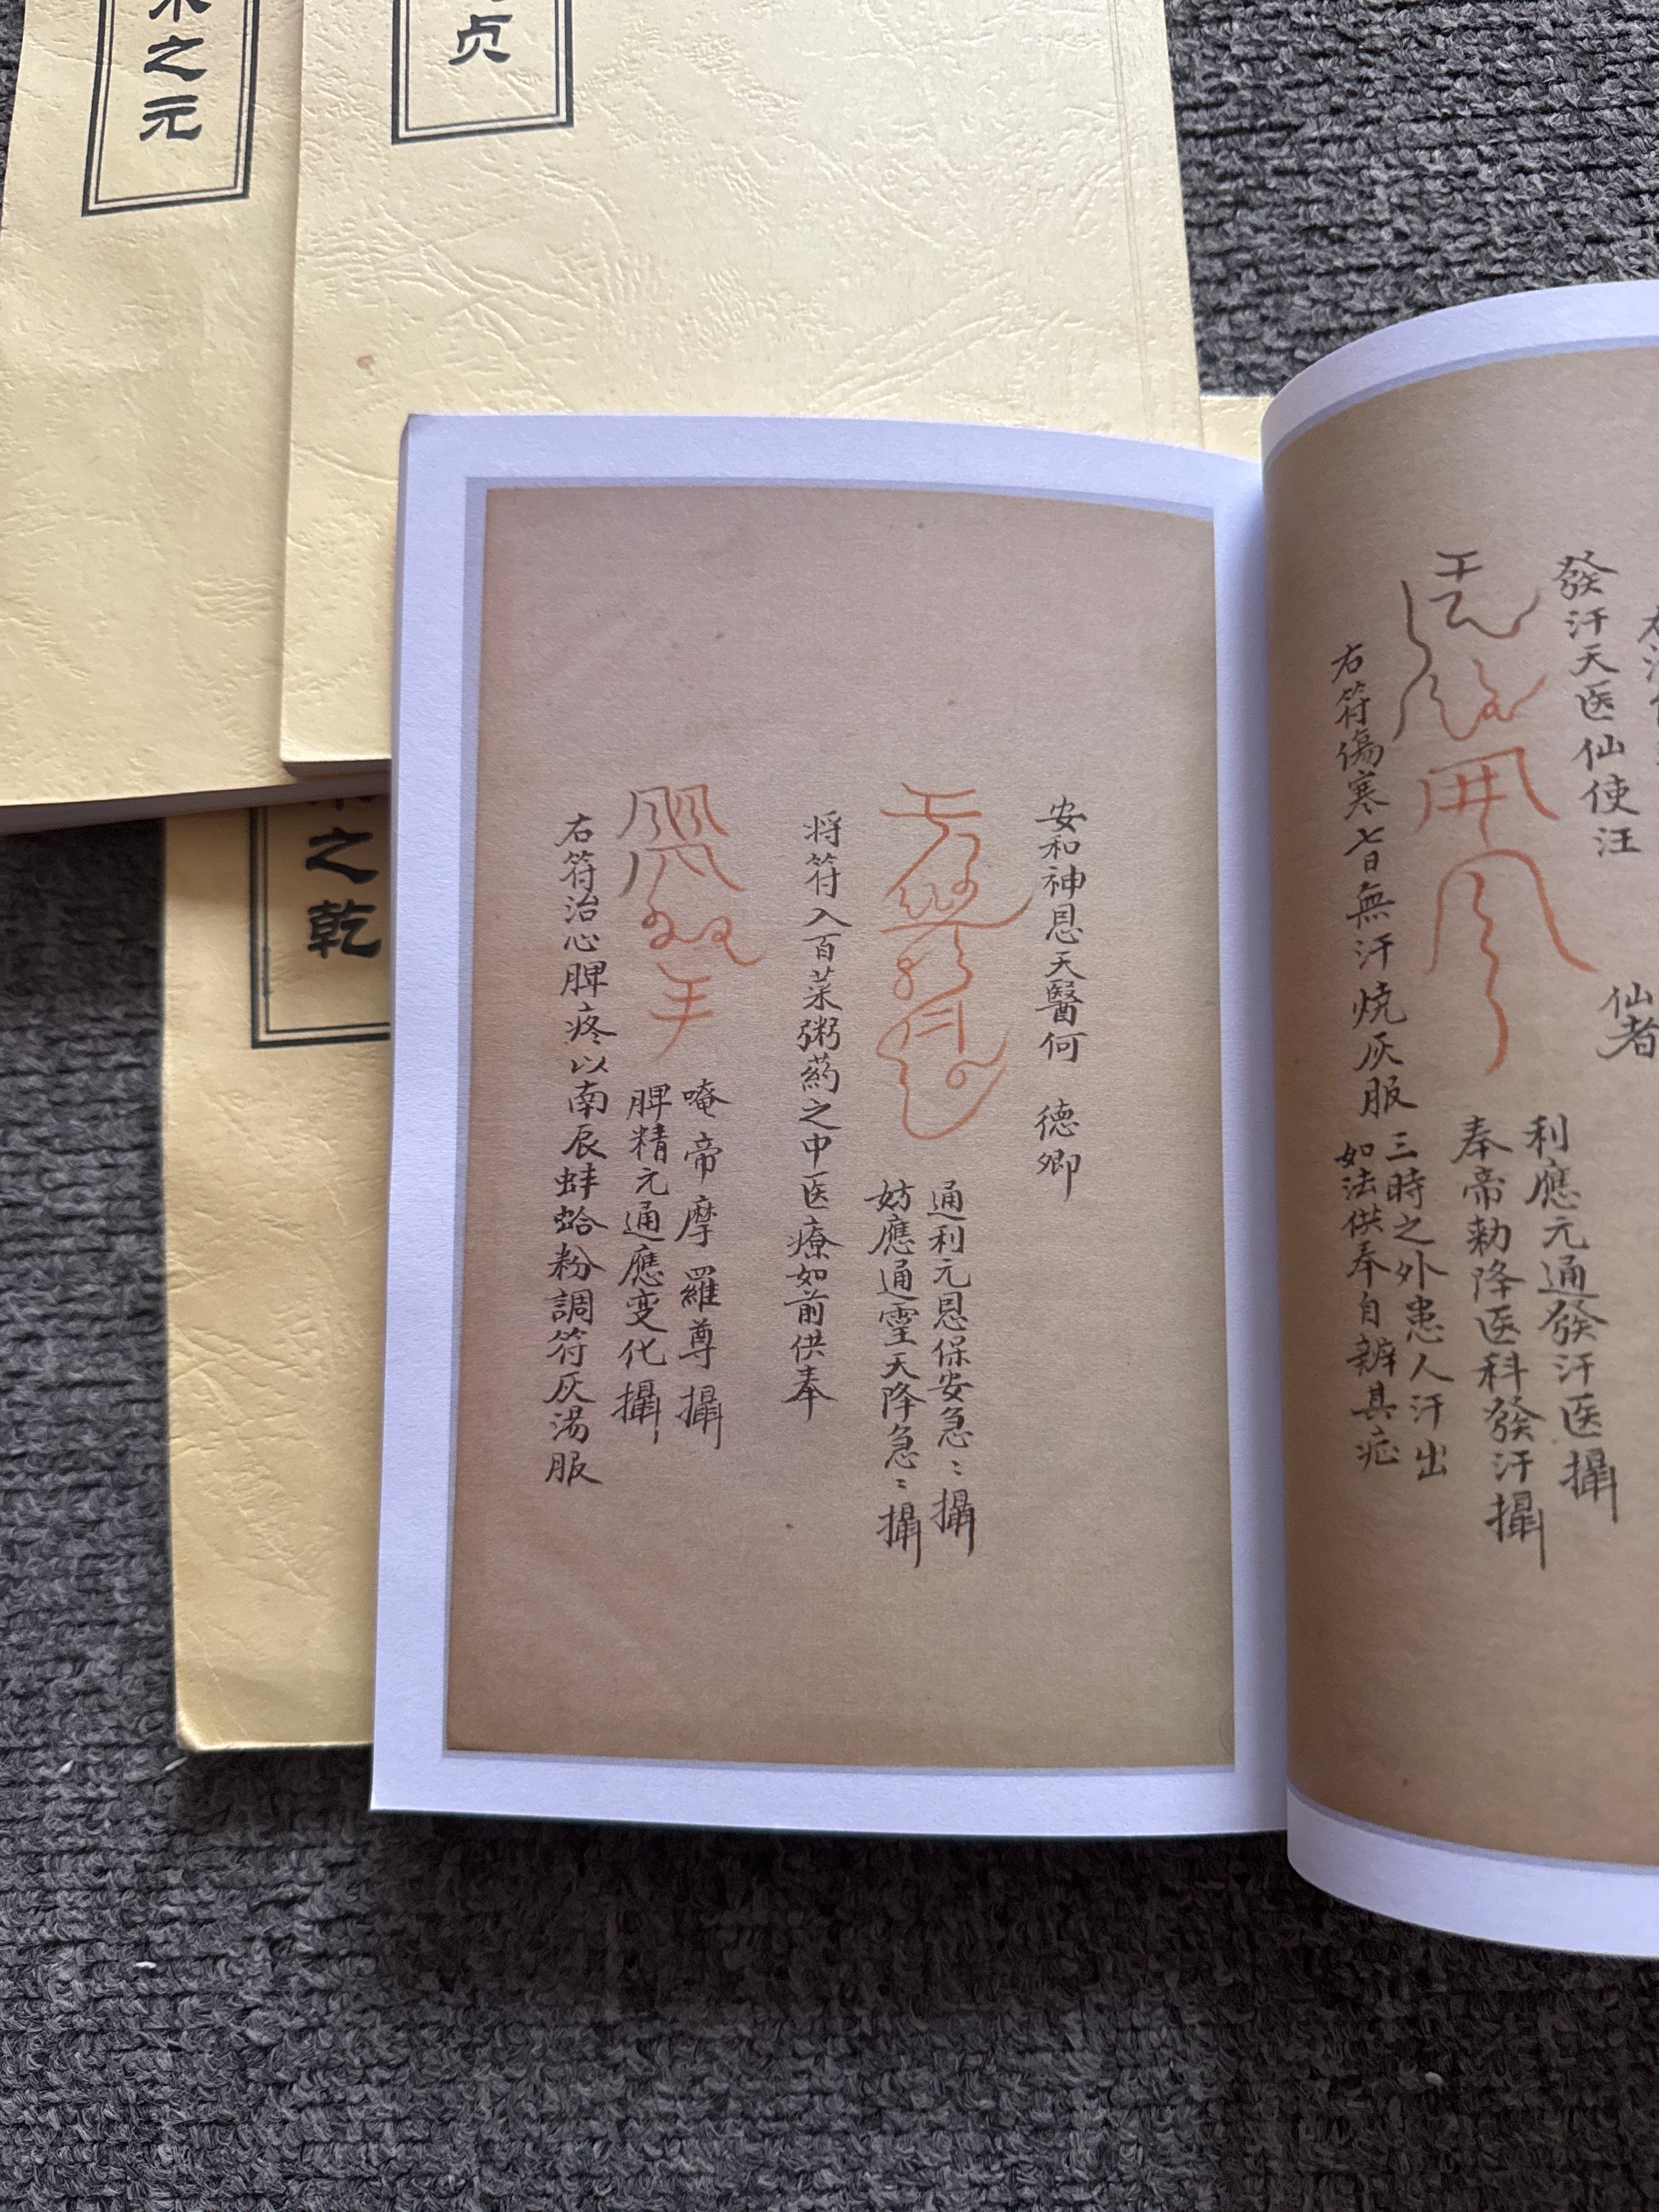 之元
贞
之乾
發汗天医仙使汪
仙者
利應元通發汗医攝
奉帝勅降医科發汗攝
右符傷寒七日無汗焼灰服
三時之外患人汗出
如法供奉自辦其症
安和神恩天醫何 德卿
通利元恩保安急〻攝
妨應通霊天降急〻攝
将符入百菜粥药之中医療如前供奉
唵帝摩羅尊攝
脾精元通應变化攝
右符治心脾疼以南辰蚌蛤粉調符灰湯服